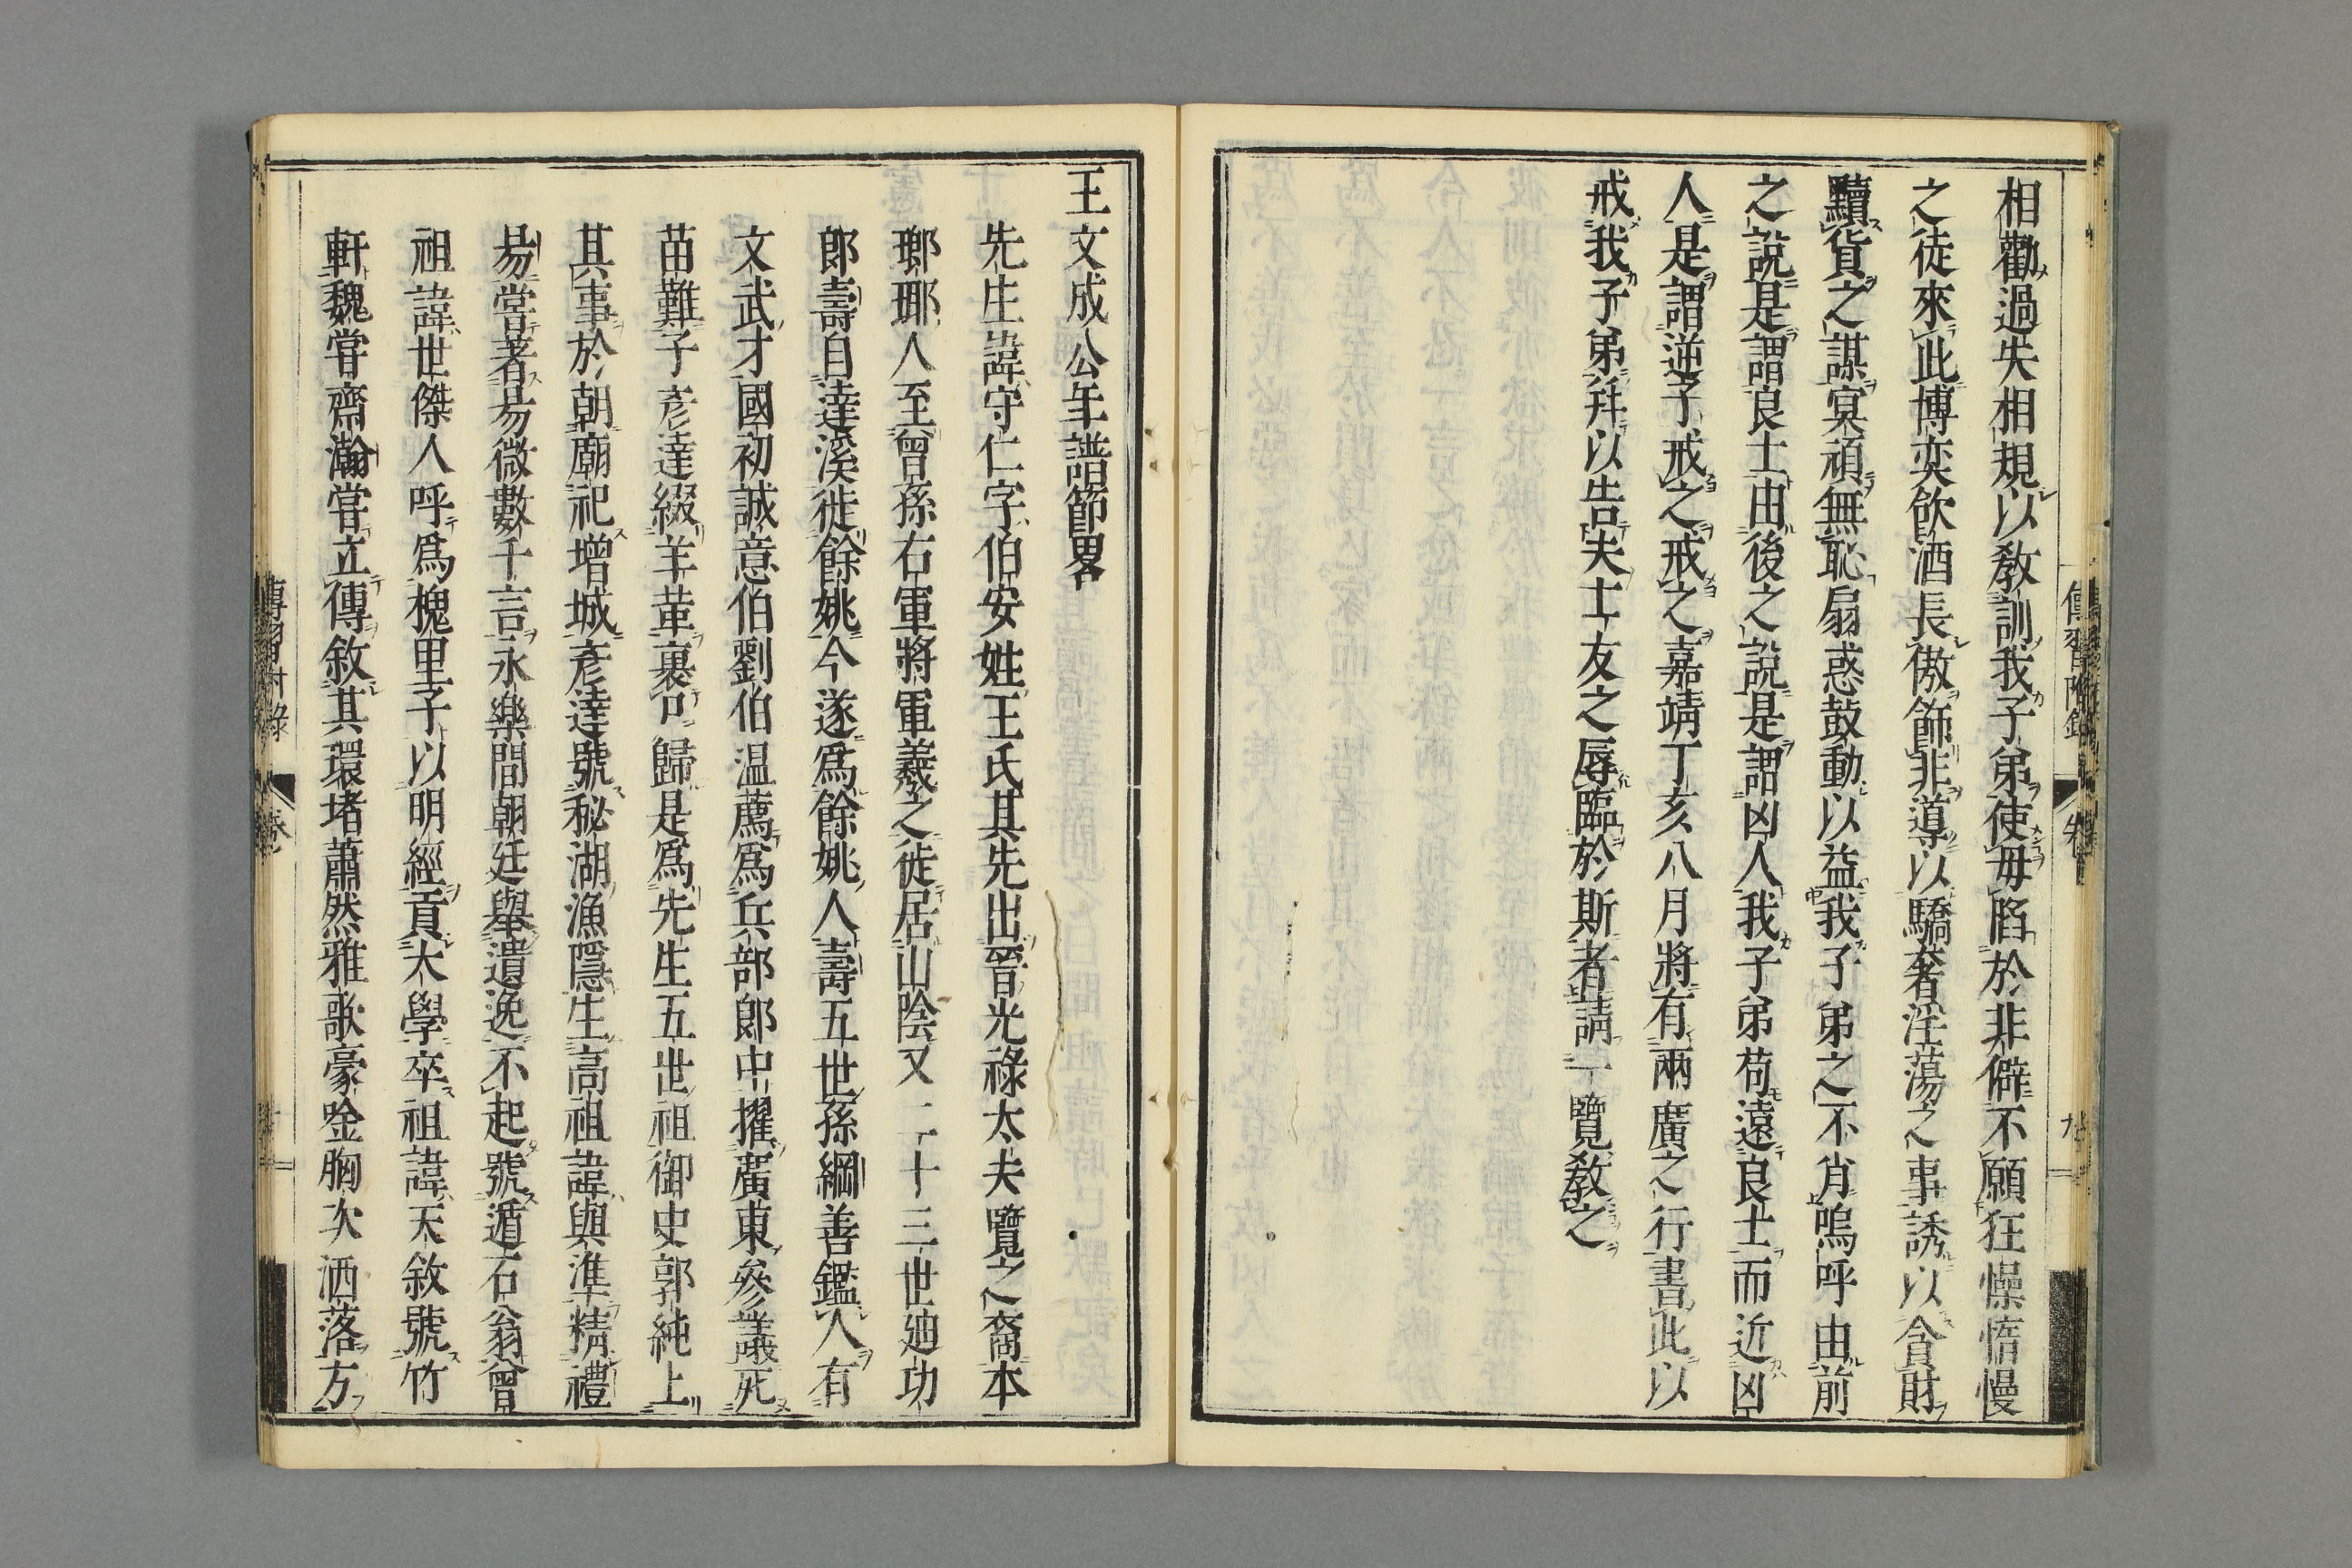 相勸過失相規以敎訓我子弟使毋䧟於非僻不願狂懆惰慢
之徒來此博奕飮酒長傲飾非導以驕奢淫蕩之事誘以貪財
黷貨之謀冥頑無恥扇惑鼓動以益我子弟之不肖嗚呼由前
之說是謂良士由後之說是謂凶人我子弟苟遠良士而近凶
人是謂逆子戒之戒之嘉靖丁亥八月將有兩廣之行書此以
戒我子弟幷以告夫士友之辱臨於斯者請一覽敎之
王文成公年譜節畧
先生諱守仁字伯安姓王氏其先出晉光祿大夫覽之裔本
瑯琊人至曾孫右軍將軍羲之徙居山陰又二十三世廸功
郎壽自達溪徙餘姚今遂爲餘姚人壽五世孫綱善鑑人有
文武才國初誠意伯劉伯温薦爲兵部郎中擢廣東參議死
苗難子彥達綴羊革裹尸歸是爲先生五世祖御史郭純上
其事於朝廟祀增城彥達號秘湖漁隱生高祖諱與準精禮
易嘗著易微數千言永樂間朝廷舉遺逸不起號遁石翁曾
祖諱世傑人呼爲槐里子以明經貢太學卒祖諱天敘號竹
軒魏嘗齋瀚嘗立傳敘其環堵蕭然雅歌豪唫胸次洒落方
傳習附錄
卷